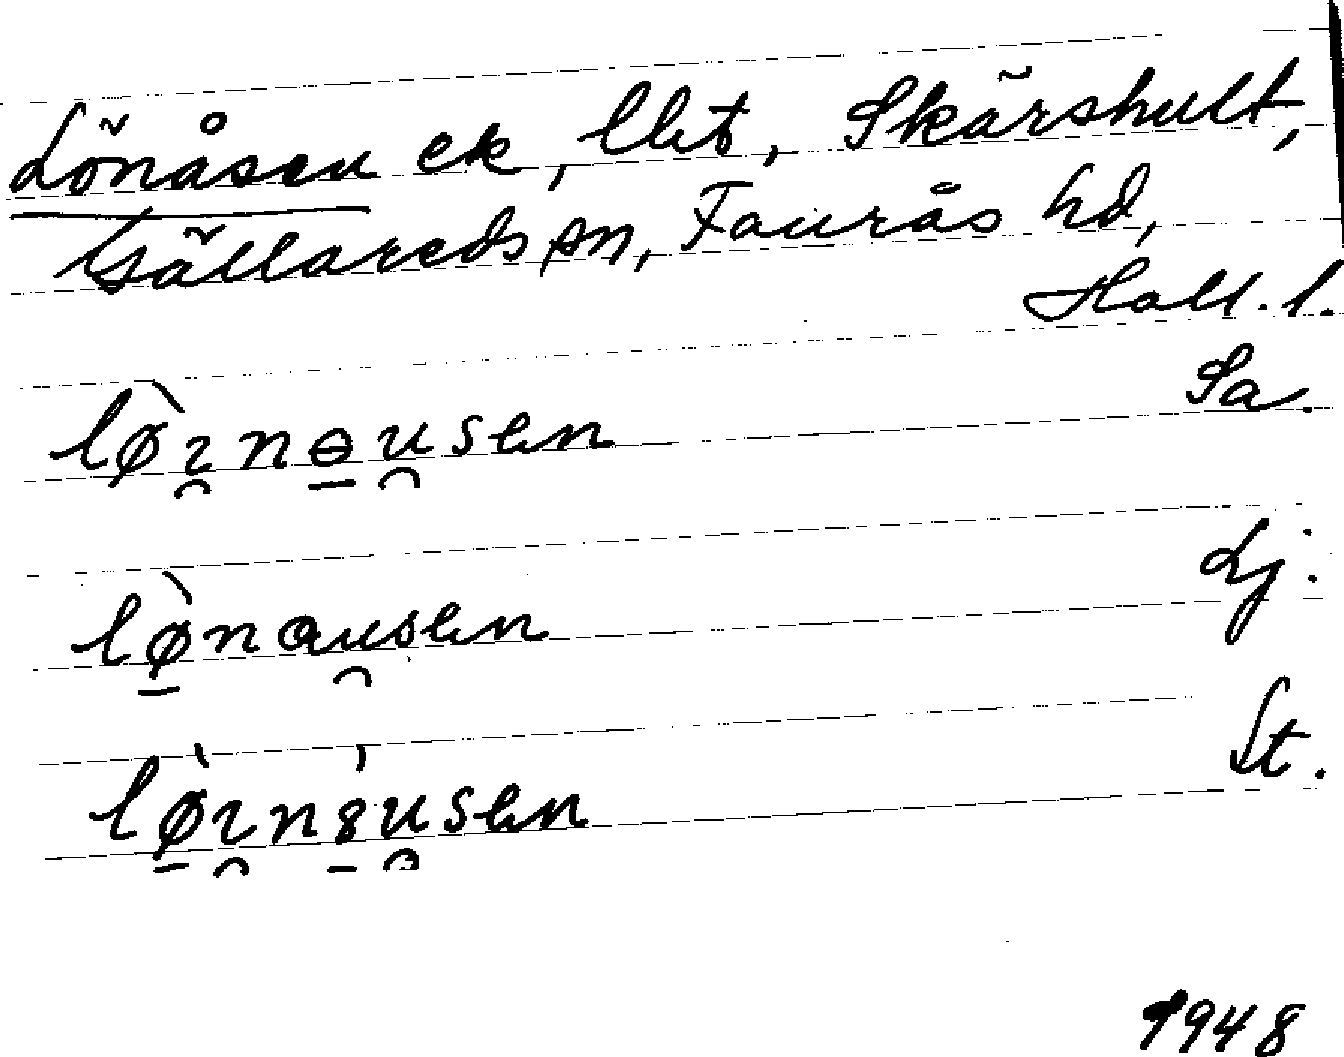 Lönåsen ek, llit, Skärshult,
Gällareds sn, Faurås hd,
Hall. l.
lø̀ɪnɵusen Sa.
lø̀nɑusen Lj.
lø̀ɪn8́usen St.
1948